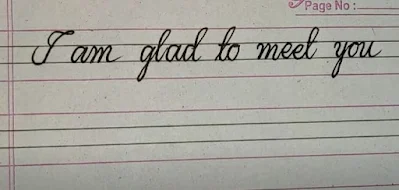 Page No :
I am glad to meet you